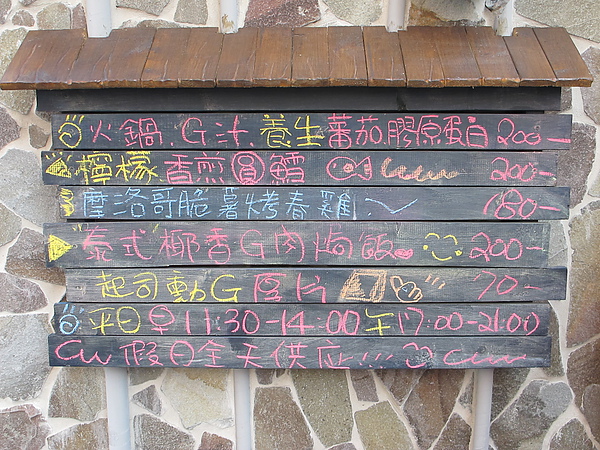 火鍋.G汁.養生蕃茄.膠原蛋白 200-
檸檬香煎圓鱈 200-
摩洛哥脆薯烤春雞 180-
"泰式"椰香G肉焗飯 200-
起司動G厚片 70-
平日早11:30-14:00午17:00-21:00
假日全天供应!!!